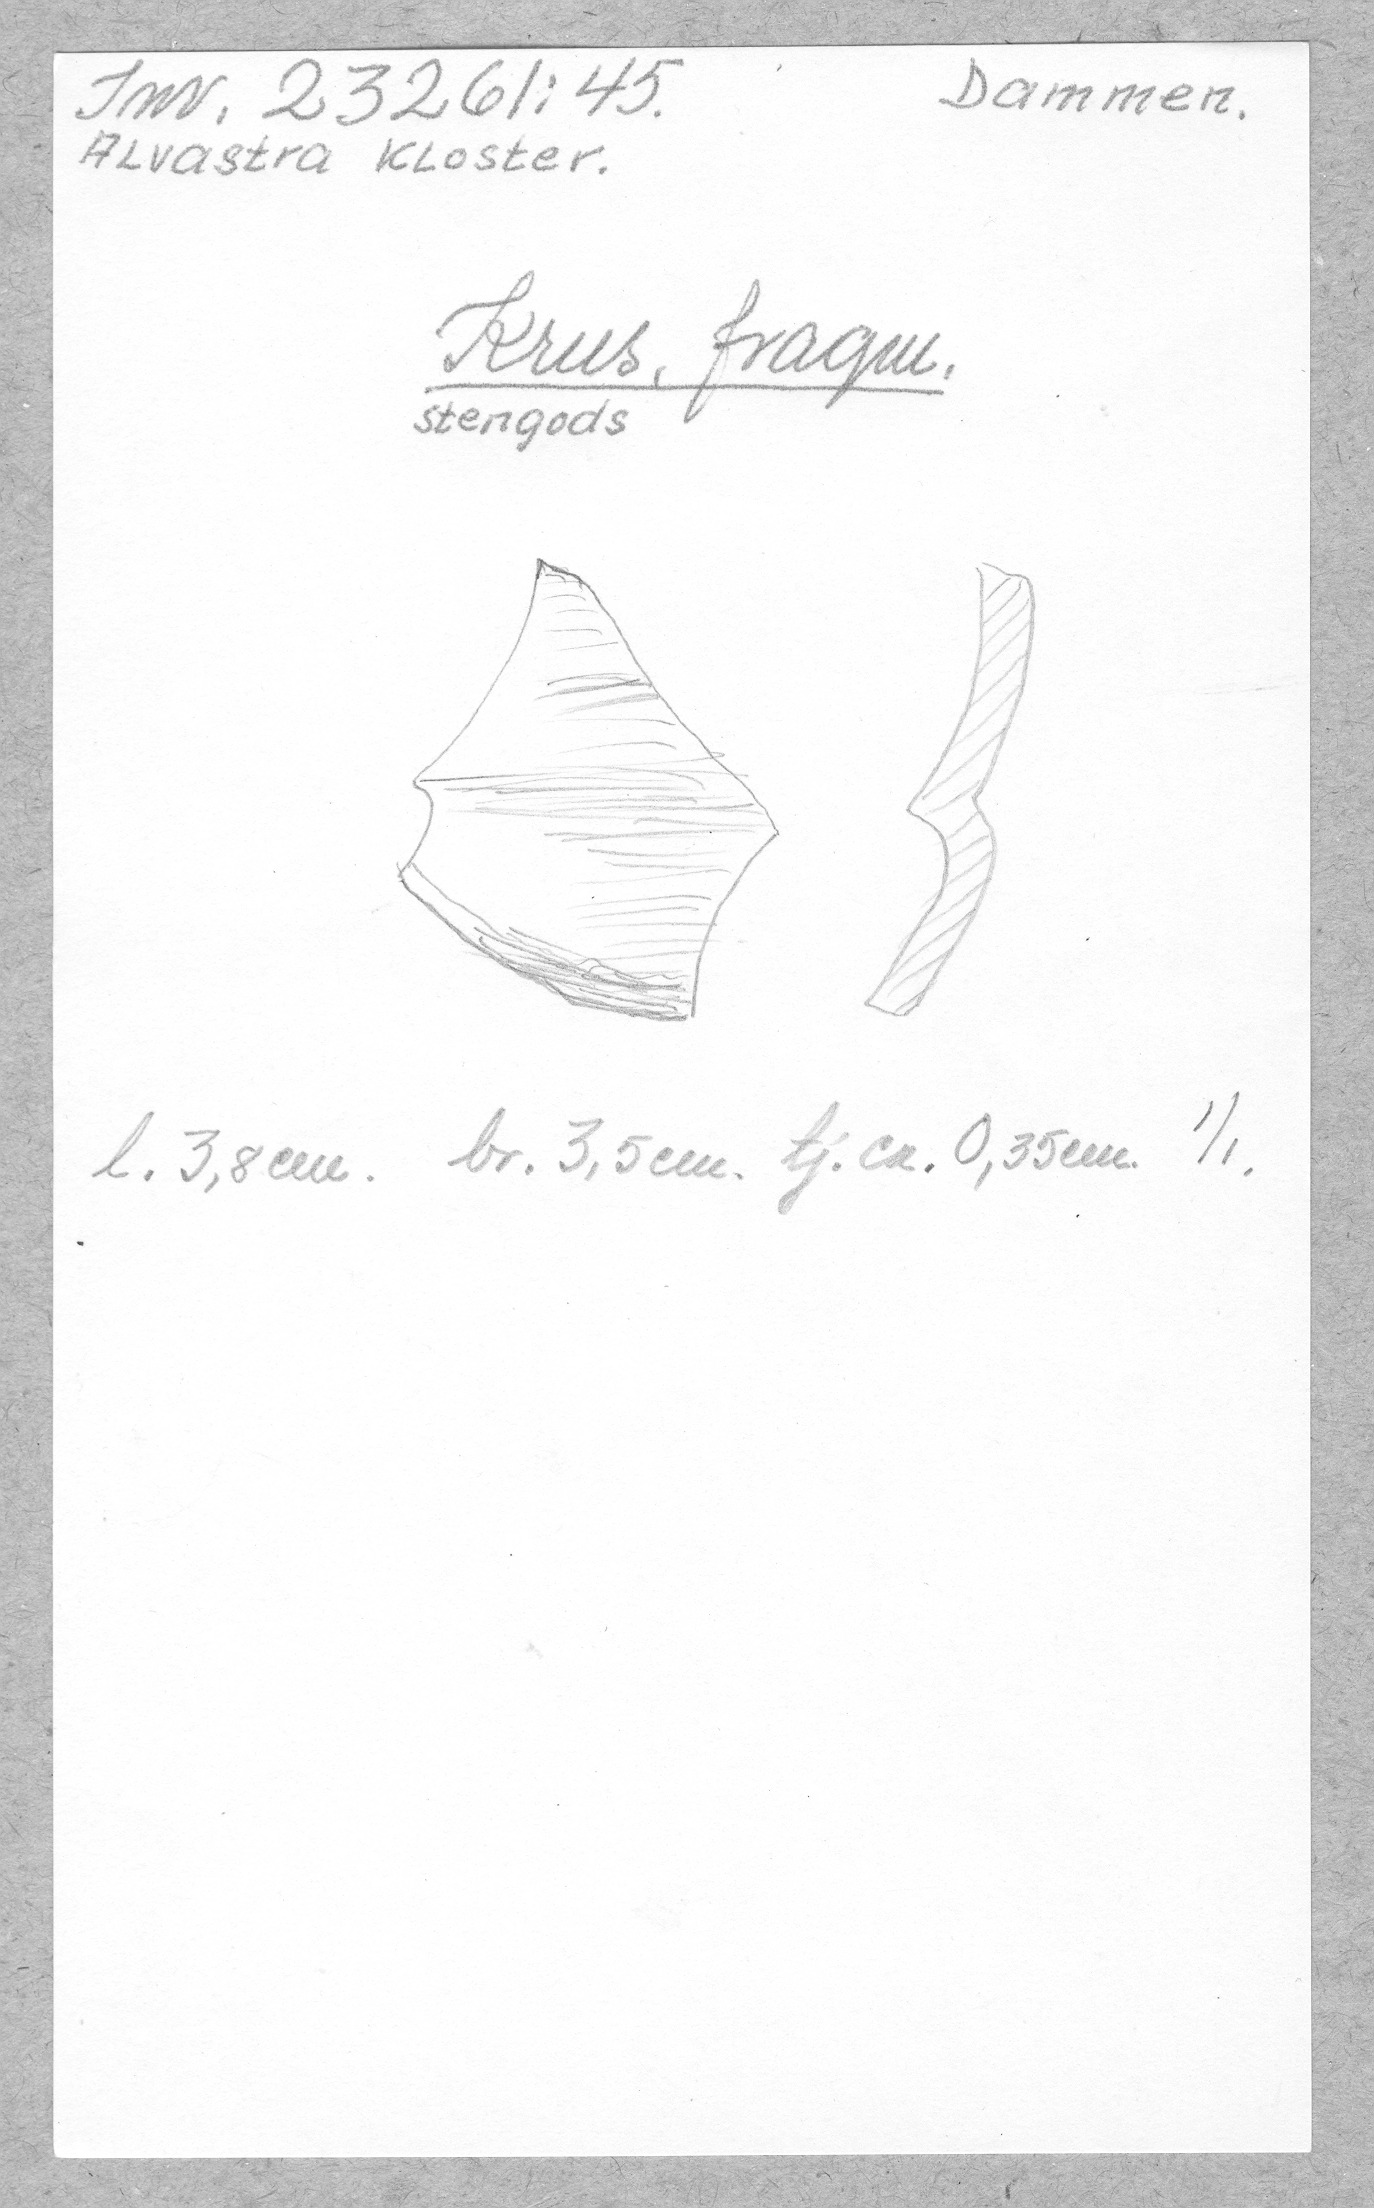 Inv. 23261:45. Dammen.
Alvastra Kloster.
Krus, fragm.
stengods
l. 3,8 cm. br. 3,5 cm. tj. ca. 0,35 cm. 1/1.